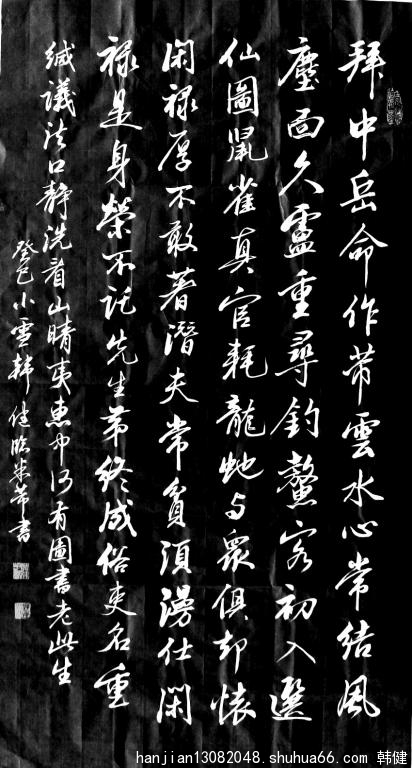 拜中岳命作芾雲水心常结風
塵面久盧重尋釣鰲客初入選
仙圖鼠雀真官耗龍虵与衆俱却懷
閑禄厚不敢著潜夫常貧須漫仕閑
禄是身榮不託先生第終成俗吏名重
缄議法口靜洗看山晴夷惠中何有圖書老此生
癸巳小雪韩健临米芾書
hanjian13082048.shuhua66.com 韩健